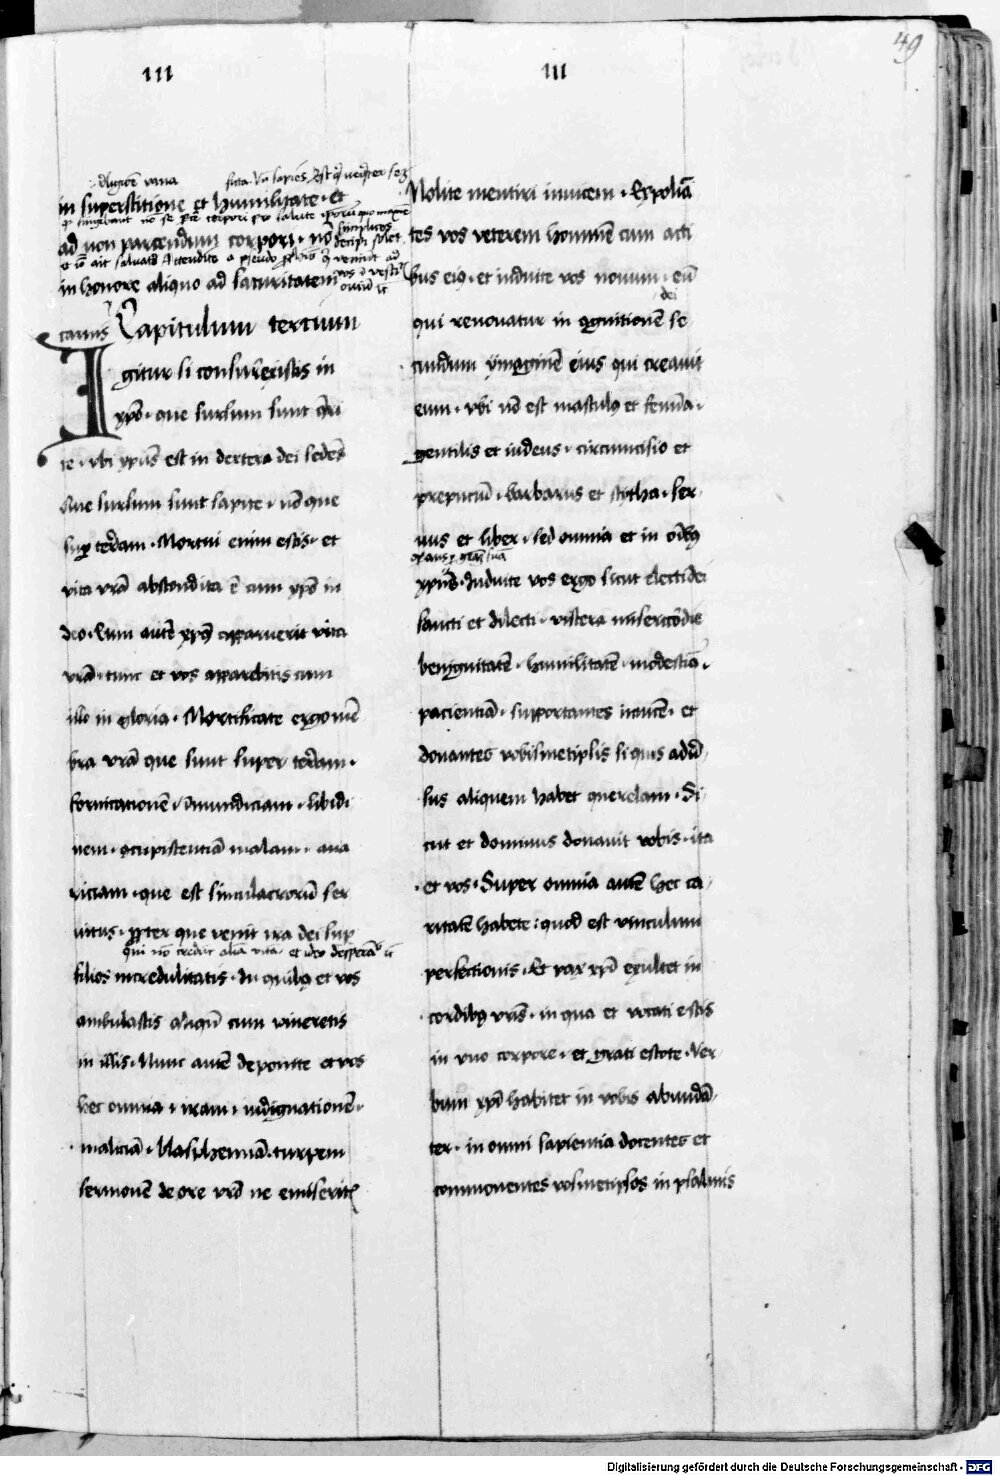 49
III
III
in superstitione et humilitate · et
ad non parcendum corpori · nō
in honore aliquo ad saturitatem
carnis Capitulum tercium
Igitur si consurrexistis in
xpō · que sursum sunt q̄ri
te · vbi xpūs est in dextera dei sedēs
Que sursum sunt sapite · nō que
sup terram · Mortui enim estis · et
vita vrā abscondita ē cum xpō in
deo · Cum autē xpūs apparuerit vita
vrā · tunc et vos apparebitis cum
illo in gloria · Mortificate ergo mē
bra vrā que sunt super terram ·
fornicationē · inmundiciam · libidi
nem · ꝯcupiscentiā malam · aua
riciam · que est simulacrorū ser
uitus · ꝓpter que venit ira dei sup
filios incredulitatis · In quibꝫ et vos
ambulastis aliqn̄ cum viueretis
in illis · Nunc autē deponite et vos
hec omnia · iram · indignationē ·
maliciā · blasphemiā · turpem
sermonē de ore vrō ne emiserit
Nolite mentiri inuicem · Expoliā
tes vos veterem hominē cum acti
bus eiꝰ · et induite vos nouum · eū
dei
qui renouatur in ꝯgnitionē se
cundum ymaginē eius qui creauit
eum · vbi nō est masculꝰ et femīa ·
gentilis et iudeus · circumcisio et
prepuciū · barbarus et scitha · ser
uus et liber · sed omnia et in oībꝫ
xpūs · Induite vos ergo sicut electi dei
sancti et dilecti · viscera misericōdie
benignitatē · humilitatē · modestiā ·
pacientiā · supportantes inuicē · et
donantes vobismetipsis si quis aduē
sus aliquem habet querelam · Si
cut et dominus donauit vobis · ita
et vos · Super omnia autē hec ca
ritatē habete : quod est vinculum
perfectionis · Et pax xpī exultet in
cordibꝫ vrīs · in qua et vocati estis
in vno corpore · et grati estote · Ver
bum xpī habitet in vobis abundā
ter · in omni sapientia docentes et
commonentes vosmetipsos in psalmis
Digitalisierung gefördert durch die Deutsche Forschungsgemeinschaft - DFG